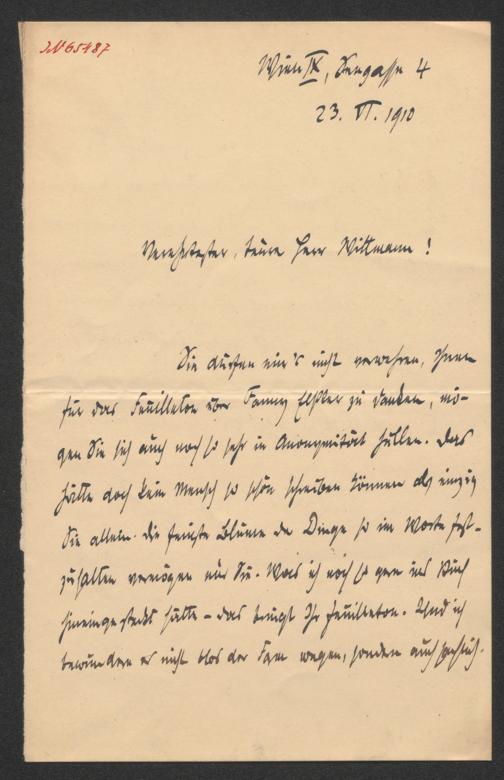 IN 65487
Wien IX, Seegasse 4
23. VI. 1910
Verehrtester, teurer Herr Wittmann!
Sie dürfen mir's nicht verwehren, Ihnen
für das Feuilleton über Fanny Elßler zu danken, mö-
gen Sie sich auch noch so sehr in Anonymität hüllen. Das
hätte doch kein Mensch so schön schreiben können als einzig
Sie allein. Die feinste Blume der Dinge so im Worte fest-
zuhalten vermögen nur Sie. Was ich noch so gern ins Buch
hineingesteckt hätte – das bringt Ihr Feuilleton. Und ich
bewundere es nicht blos der Form wegen, sondern auch sachlich.